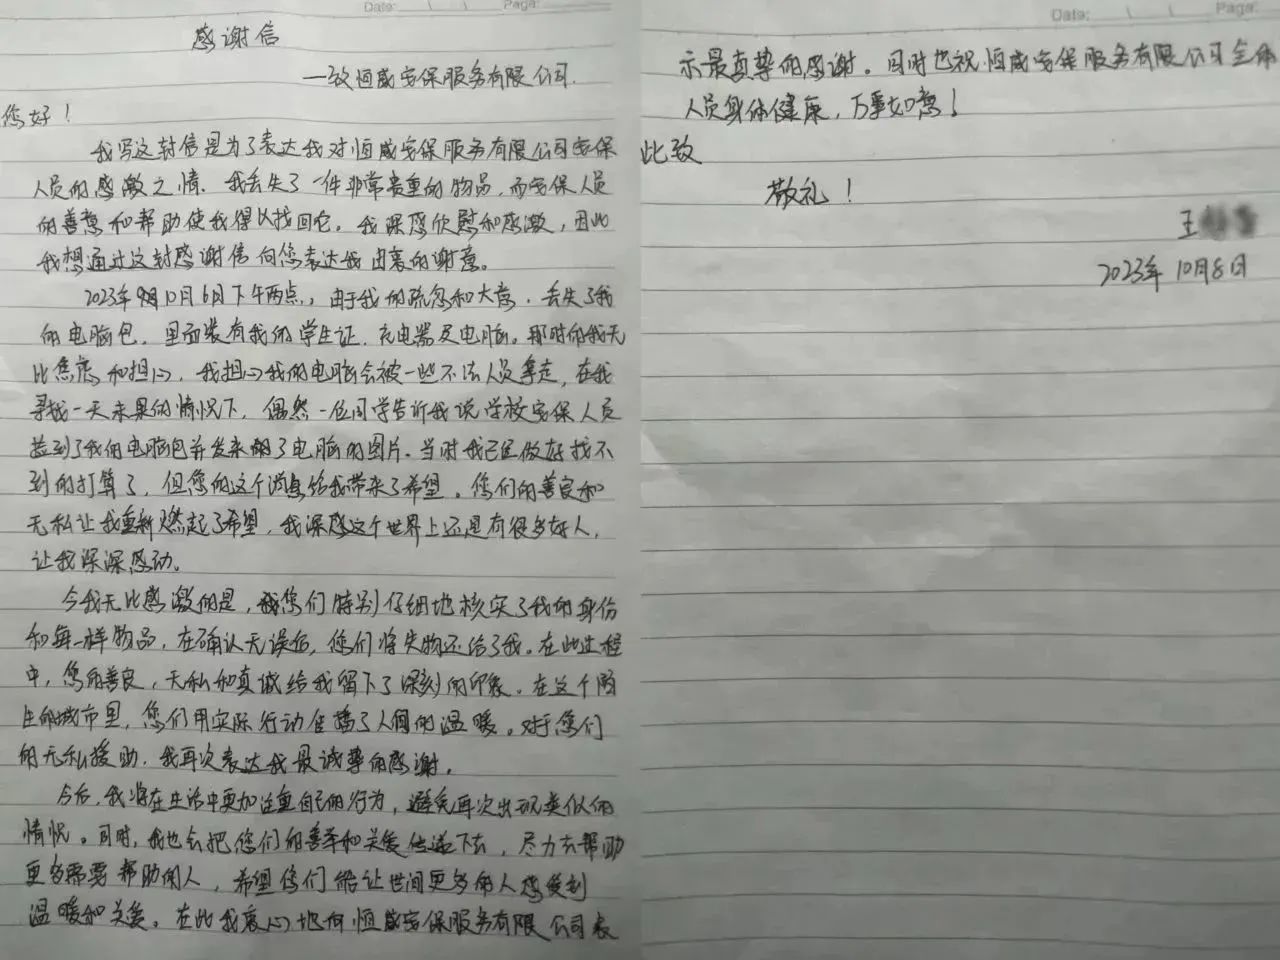 Date: Page:
感谢信
—致恒威安保服务有限公司.
您好！
我写这封信是为了表达我对恒威安保服务有限公司安保
人员的感激之情. 我丢失了一件非常贵重的物品，而安保人员
的善意和帮助使我得以找回它。我深感欣慰和感激，因此
我想通过这封感谢信向您表达我由衷的谢意。
2023年10月6日下午两点，由于我的疏忽和大意，丢失了我
的电脑包，里面装有我的学生证、充电器及电脑。那时的我无
比焦虑和担心，我担心我的电脑会被一些不法人员拿走，在我
寻找一天未果的情况下，偶然一位同学告诉我说学校安保人员
捡到了我的电脑包并发来了电脑的图片。当时我已经做好找不
到的打算了，但您的这个消息给我带来了希望。您们的善良和
无私让我重新燃起了希望，我深感这个世界上还是有很多好人，
让我深深感动。
令我无比感激的是，您们特别仔细地核实了我的身份
和每一样物品，在确认无误后，您们将失物还给了我。在此过程
中，您的善良，无私和真诚给我留下了深刻的印象。在这个陌
生的城市里，您们用实际行动传播了人间的温暖。对于您们
的无私援助，我再次表达我最诚挚的感谢。
今后，我将在生活中更加注重自己的行为，避免再次出现类似的
情况。同时，我也会把您们的善举和关爱传递下去，尽力去帮助
更多需要帮助的人，希望您们能让世间更多的人感受到
温暖和关爱。在此我衷心地向恒威安保服务有限公司表
Date: Page:
示最真挚的感谢。同时也祝恒威安保服务有限公司全体
人员身体健康，万事如意！
此致
敬礼！
王
2023年10月8日